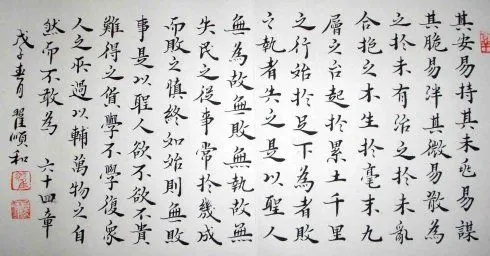 其安易持其未兆易謀
其脆易泮其微易散為
之於未有治之於未亂
合抱之木生於毫末九
層之台起於累土千里
之行始於足下為者敗
之執者失之是以聖人
無為故無敗無執故無
失民之從事常於幾成
而敗之慎終如始則無敗
事是以聖人欲不欲不貴
難得之貨學不學復衆
人之所過以輔萬物之自
然而不敢為 六十四章
戊子 翟順和